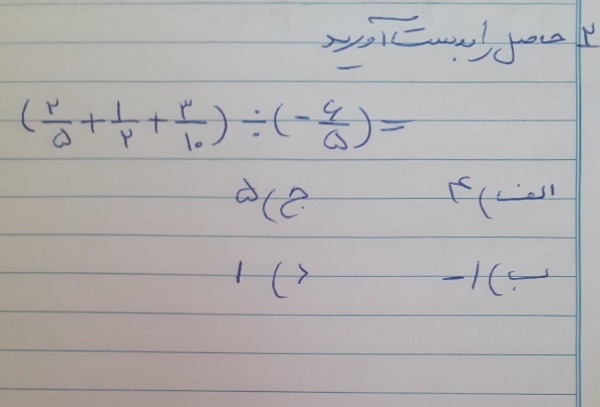 ۲ حاصل را بدست آورید
(۲/۵ + ۱/۲ + ۳/۱۰) ÷ (- ۶/۵) =
الف) ۴ ج) ۵
ب) ۱- د) ۱